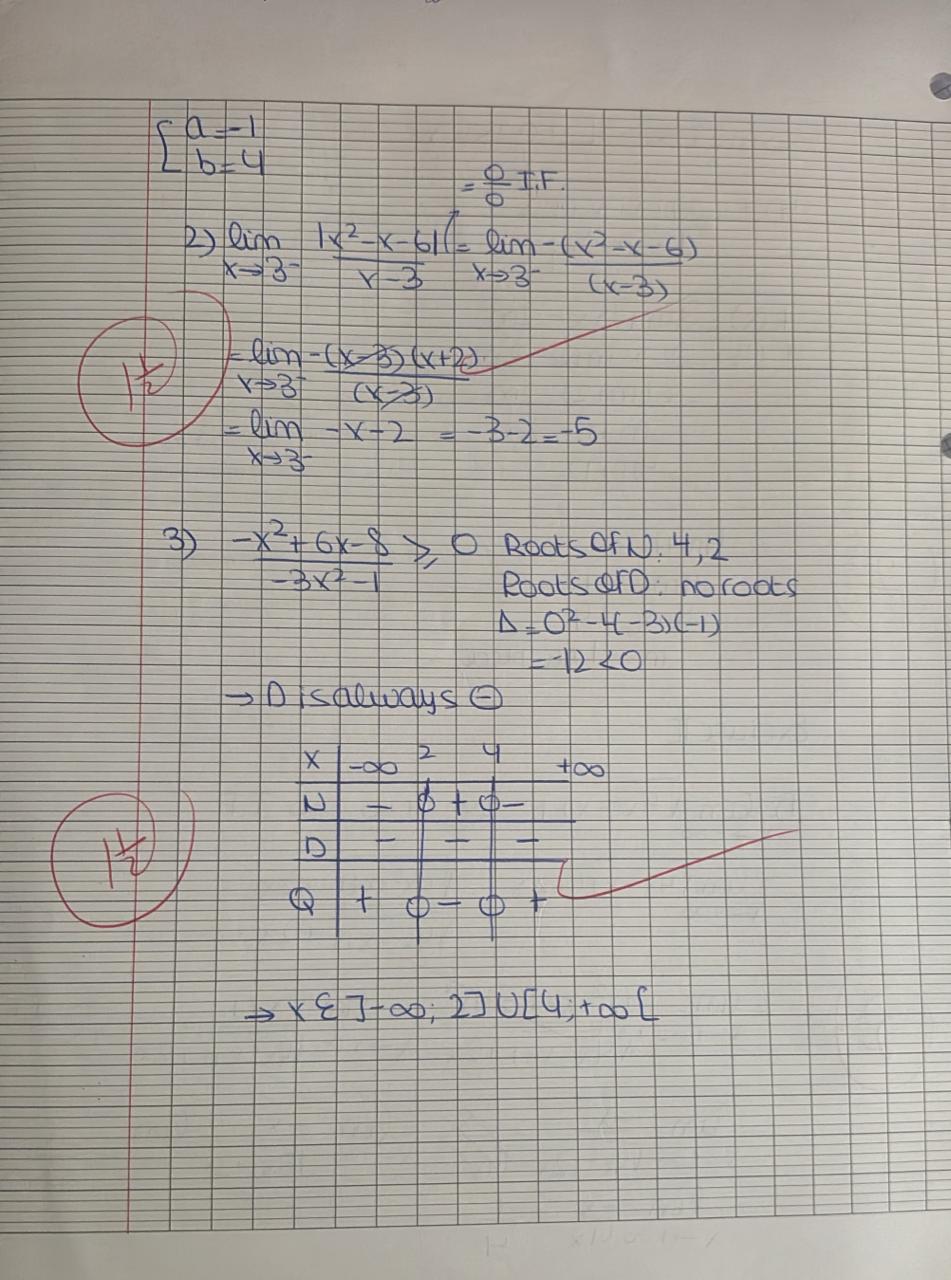 { a=-1
b=4
= 0/0 I.F.
2) lim x→3⁻ |x²-x-6|/(x-3) = lim x→3⁻ -(x²-x-6)/(x-3)
1 1/2
= lim x→3⁻ -(x-3)(x+2)/(x-3)
= lim x→3⁻ -x-2 = -3-2=-5
3) (-x²+6x-8)/(-3x²-1) ≥ 0 Roots of N: 4,2
Roots of D: no roots
Δ=0²-4(-3)(-1)
=-12<0
→ D is always ⊖
x | -∞ 2 4 +∞
N | - ϕ + ϕ -
D | - - -
1 1/2
Q | + ϕ - ϕ +
→ x ∈ ]-∞; 2] U [4; +∞[